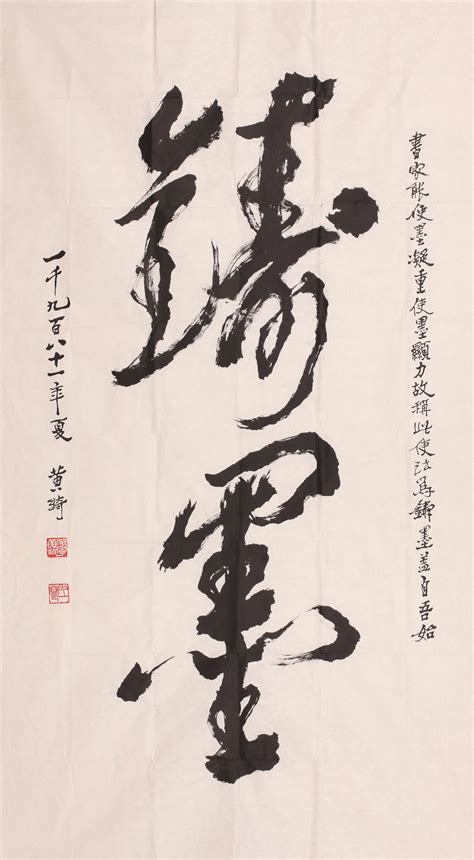 書家能使墨凝重使墨顯力故稱此使法為鑄墨蓋自吾始
鑄墨
一千九百八十一年夏
黄琦